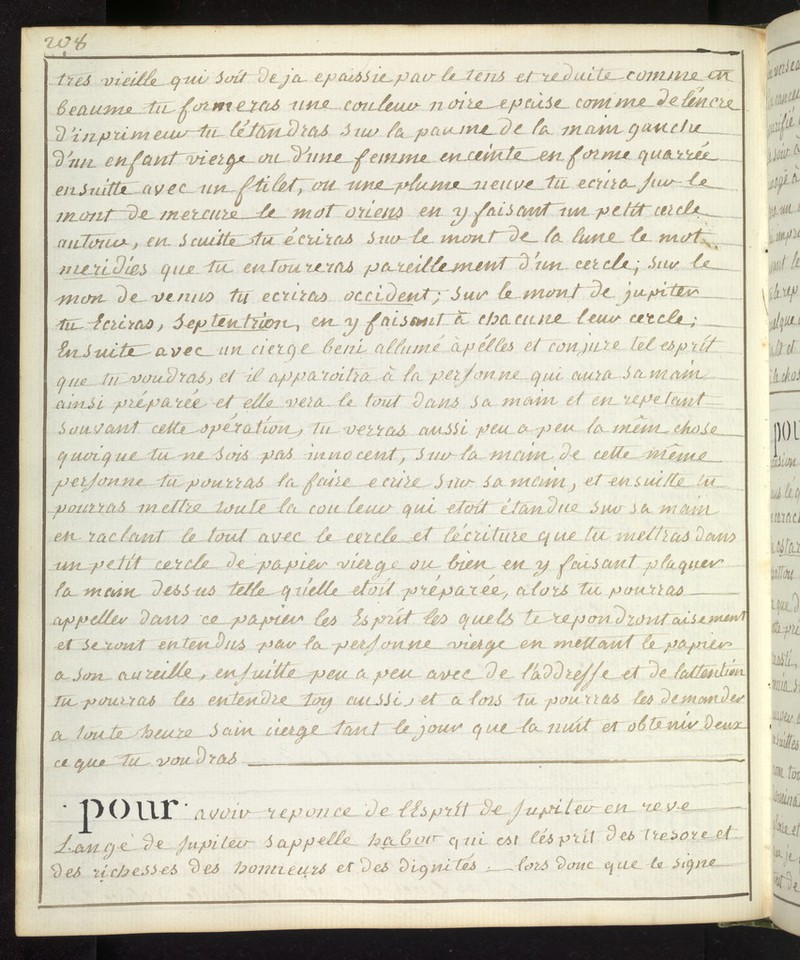 208
tres vieille qui soit deja epaissie par le tens et reduite comme un
beaume tu formeras une couleur noire epaise comme de l'encre
d'inprimeur tu l'étandras sur la paume de la main gauche
d'un enfant vierge ou d'une femme enceinte en forme quarrée
ensuitte avec un stilet, ou une plume neuve tu ecrira sur le
mont de mercure le mot oriens en y faisant un petit cercle
autour, en scuitte tu écriras sur le mont de la lune le mot
meridies que tu entoureras pareillement d'un cercle; sur le
mon de venus tu ecriras occident; sur le mont de jupiter
tu Ecriras, Septentrion, en y faisant à chacune leur cercle;
Ensuite avec un cierge beni allumé apélles et conjure tel esprit
que tu voudras, et il apparoitra à la personne qui aura sa main
ainsi préparée et elle vera le tout dans sa main et en repetant
souvant cette opération, tu verras aussi peu a peu la mêm chose
quoique tu ne sois pas innocent, sur la main de cette même
personne tu pourras la faire ecrire sur sa main, et ensuitte tu
pourras mettre toute la couleur qui etoit étandue sur sa main
en raclant le tout avec le cercle et lécriture que tu mettras dans
un petit cercle de papier vierge ou bien en y faisant plaquer
la main dessus telle qu'elle etoit préparée, alors tu pourras
appeller dans ce papier les Esprit les quels te repondront aisement
et seront entendus par la personne vierge en mettant le papier
a son aureille, ensuitte peu a peu avec de l'áddresse et de lattention
tu pourras les entendre toy aussi, et a lors tu pourras les demander
a toute heure sain cierge tant le jour que la nuit et obtenir deux
ce que tu voudras
pour avoir reponce de l'Esprit de Jupiter en reve
Lange de Jupiter sappelle habor qui est lésprit des tresore et
des richesses des honneurs et des dignités lors donc que le signe